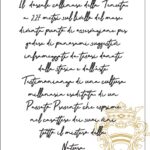 Il dorsale collinare della Tenuta
a 227 metri sul livello del mare
diventa punto di osservazione per
godere di panorami suggestivi
impreziositi da tesori donati
dalla storia e dalla arte.
Testimonianza di una cultura
millenaria ereditata di un
Passato Presente che esprime
nel carattere dei suoi vini
tutto il mistero della
Natura.